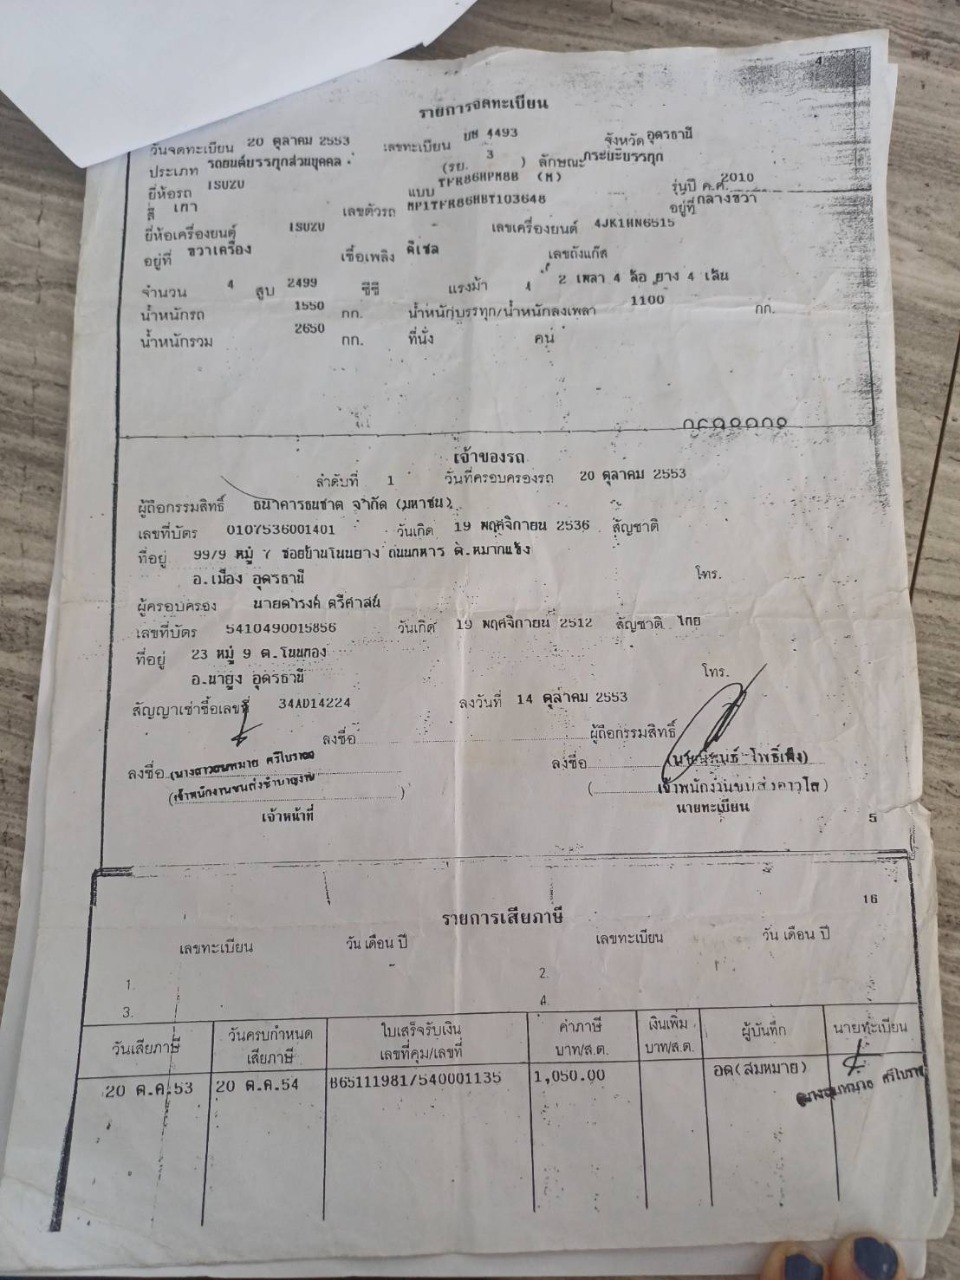 4
รายการจดทะเบียน
วันจดทะเบียน 20 ตุลาคม 2553 เลขทะเบียน บษ 4493 จังหวัด อุดรธานี
ประเภท รถยนต์บรรทุกส่วนบุคคล (รย. 3 ) ลักษณะ กระบะบรรทุก
ยี่ห้อรถ ISUZU แบบ TFR86HPM8B (M) รุ่นปี ค.ศ. 2010
สี เทา เลขตัวรถ MP1TFR86HBT103648 อยู่ที่ กลางขวา
ยี่ห้อเครื่องยนต์ ISUZU เลขเครื่องยนต์ 4JK1HN6515
อยู่ที่ ขวาเครื่อง เชื้อเพลิง ดีเซล เลขถังแก๊ส
จำนวน 4 สูบ 2499 ซีซี แรงม้า 2 เพลา 4 ล้อ ยาง 4 เส้น
น้ำหนักรถ 1550 กก. น้ำหนักบรรทุก/น้ำหนักลงเพลา 1100 กก.
น้ำหนักรวม 2650 กก. ที่นั่ง คน
เจ้าของรถ
ลำดับที่ 1 วันที่ครอบครองรถ 20 ตุลาคม 2553
ผู้ถือกรรมสิทธิ์ ธนาคารธนชาต จำกัด (มหาชน)
เลขที่บัตร 0107536001401 วันเกิด 19 พฤศจิกายน 2536 สัญชาติ
ที่อยู่ 99/9 หมู่ 7 ซอยบ้านโนนยาง ถนนทหาร ต.หมากแข้ง
อ.เมือง อุดรธานี โทร.
ผู้ครอบครอง นายดำรงค์ ตรีศาสน์
เลขที่บัตร 5410490015856 วันเกิด 19 พฤศจิกายน 2512 สัญชาติ ไทย
ที่อยู่ 23 หมู่ 9 ต.โนนทอง
อ.นายูง อุดรธานี โทร.
สัญญาเช่าซื้อเลขที่ 34AD14224 ลงวันที่ 14 ตุลาคม 2553
ลงชื่อ ผู้ถือกรรมสิทธิ์
ลงชื่อ ลงชื่อ
(เจ้าพนักงานขนส่งชำนาญงาน)
เจ้าหน้าที่ นายทะเบียน
5
16
รายการเสียภาษี
เลขทะเบียน วัน เดือน ปี เลขทะเบียน วัน เดือน ปี
1. 2.
3. 4.
วันเสียภาษี วันครบกำหนด เสียภาษี ใบเสร็จรับเงิน เลขที่คุม/เลขที่ ค่าภาษี บาท/ส.ต. เงินเพิ่ม บาท/ส.ต. ผู้บันทึก นายทะเบียน
20 ต.ค.53 20 ต.ค.54 B65111981/540001135 1,050.00 อด(สมหมาย)